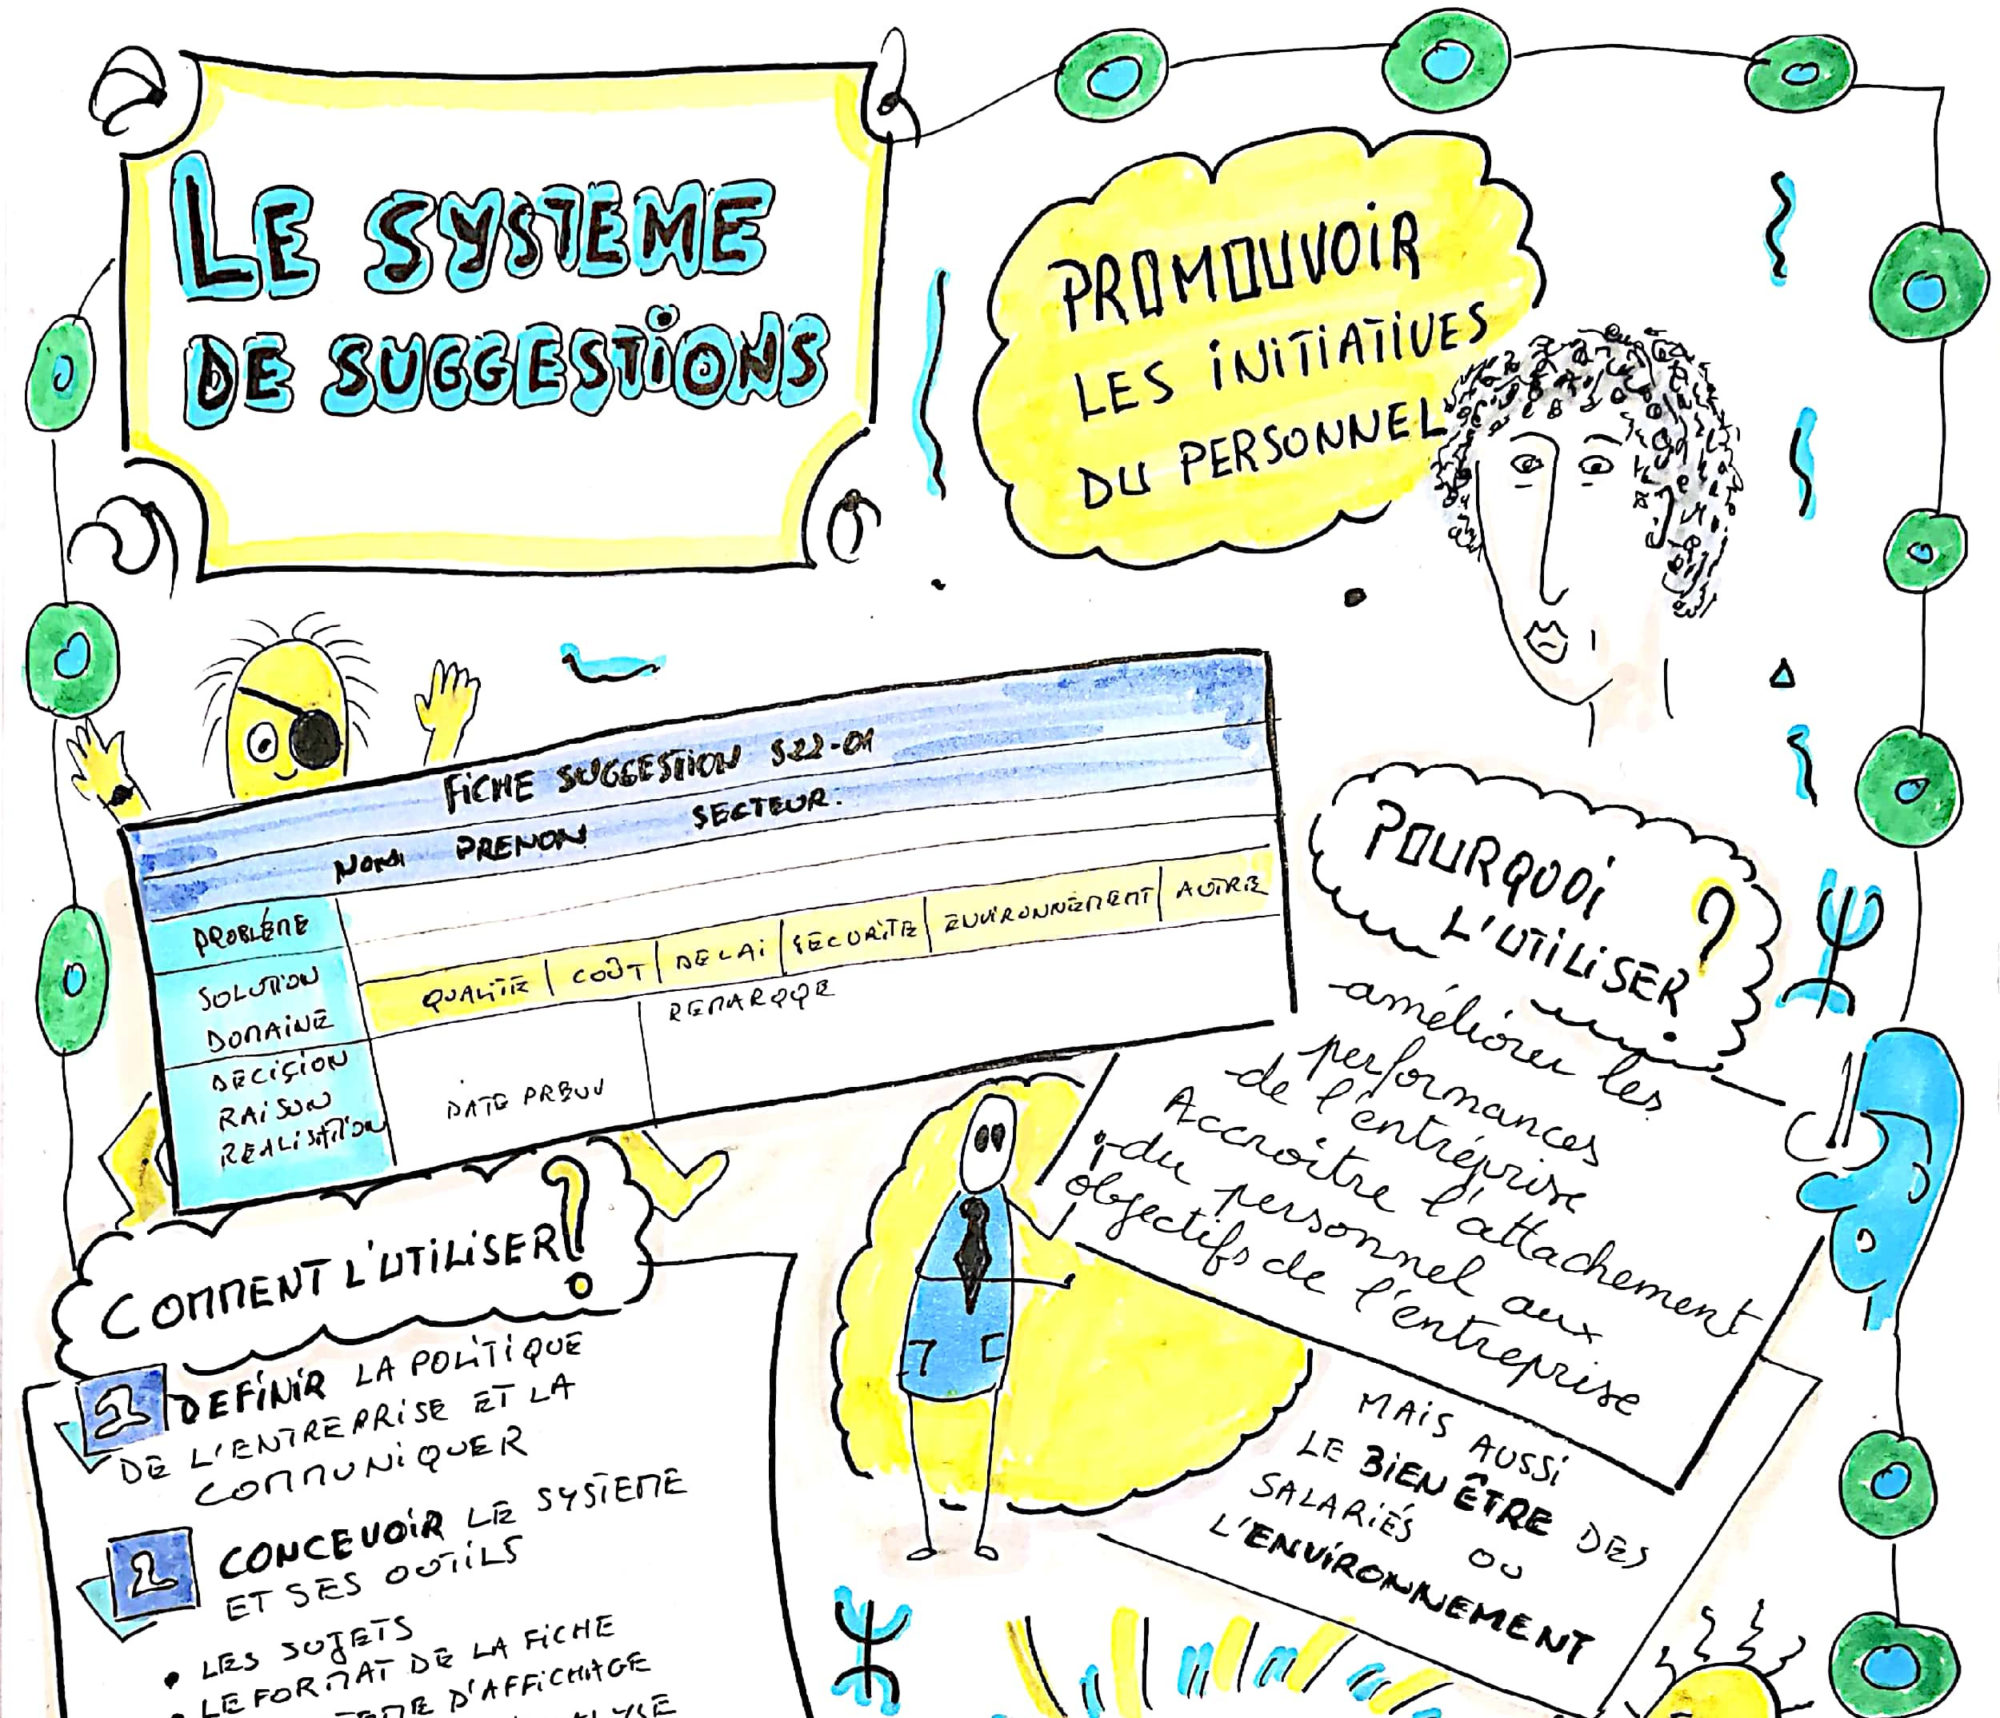 LE SYSTEME
DE SUGGESTIONS
PROMOUVOIR
LES INITIATIVES
DU PERSONNEL
FICHE SUGGESTION S22-01
NOM PRENON SECTEUR.
PROBLÉME
SOLUTION
DOMAINE
QUALITE | COÛT | DELAI | SECURITE | ENVIRONNEMENT | AUTRE
DECISION
RAISON
REALISATION
DATE PREVU
REMARQUE
POURQUOI
L'UTILISER ?
améliorer les
performances
de l'entréprise
Accroître l'attachement
du personnel aux
objectifs de l'entreprise
MAIS AUSSI
LE BIEN ÊTRE DES
SALARIÉS OU
L'ENVIRONNEMENT
COMMENT L'UTILISER ?
1 DEFINIR LA POLITIQUE
DE L'ENTREPRISE ET LA
COMMUNIQUER
2 CONCEVOIR LE SYSTEME
ET SES OUTILS
• LES SUJETS
• LE FORMAT DE LA FICHE
D'AFFICHAGE